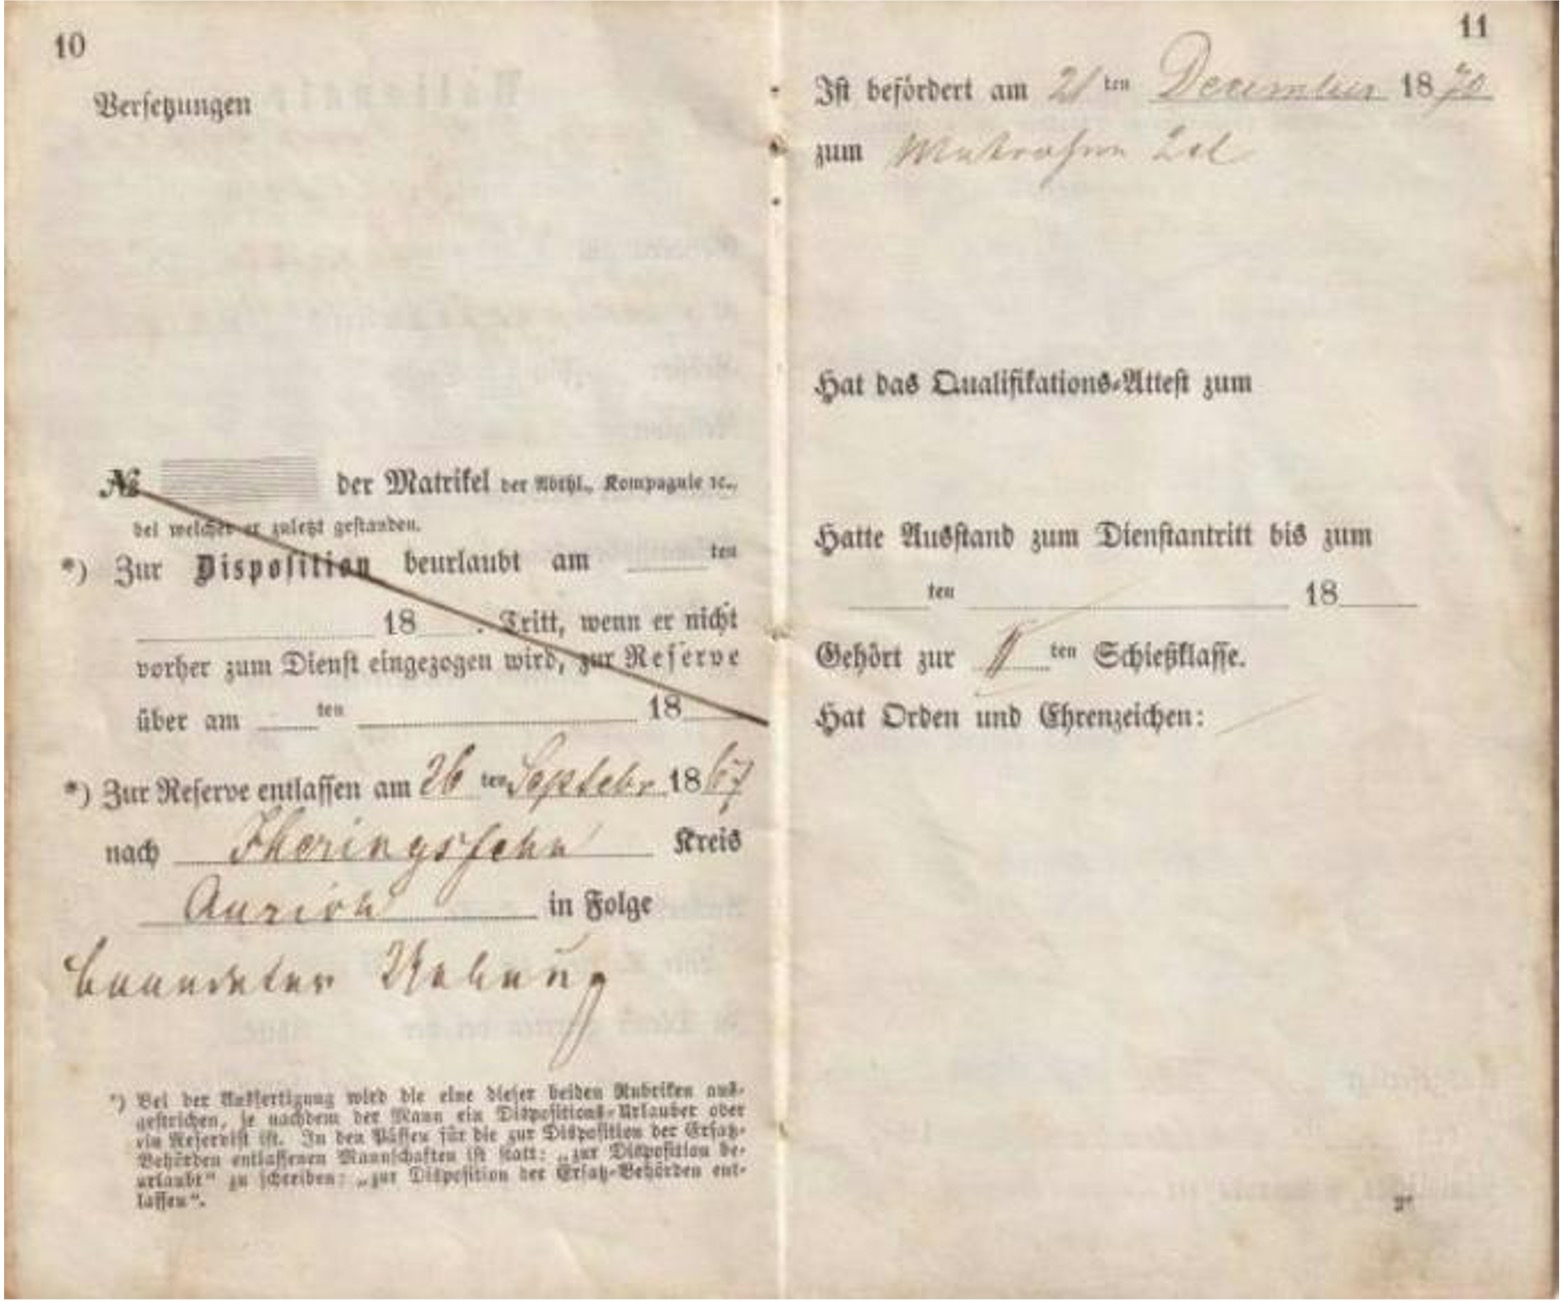 10
Versetzungen
№ der Matrikel der Abthl., Kompagnie ꝛc.,
bei welcher er zuletzt gestanden.
*) Zur Disposition beurlaubt am ten
18 . Tritt, wenn er nicht
vorher zum Dienst eingezogen wird, zur Reserve
über am ten 18
*) Zur Reserve entlassen am 26 ten Septebr 1867
nach Iheringsfehn Kreis
Aurich in Folge
beendeter Uebung
*) Bei der Ausfertigung wird die eine dieser beiden Rubriken aus-
gestrichen, je nachdem der Mann ein Dispositions-Urlauber oder
ein Reservist ist. In den Pässen für die zur Disposition der Ersatz-
Behörden entlassenen Mannschaften ist statt: „zur Disposition be-
urlaubt“ zu schreiben: „zur Disposition der Ersatz-Behörden ent-
lassen“.
11
Ist befördert am 21 ten December 1870
zum Matrosen 2 Cl
Hat das Qualifikations-Attest zum
Hatte Ausstand zum Dienstantritt bis zum
ten 18
Gehört zur ten Schießklasse.
Hat Orden und Ehrenzeichen: